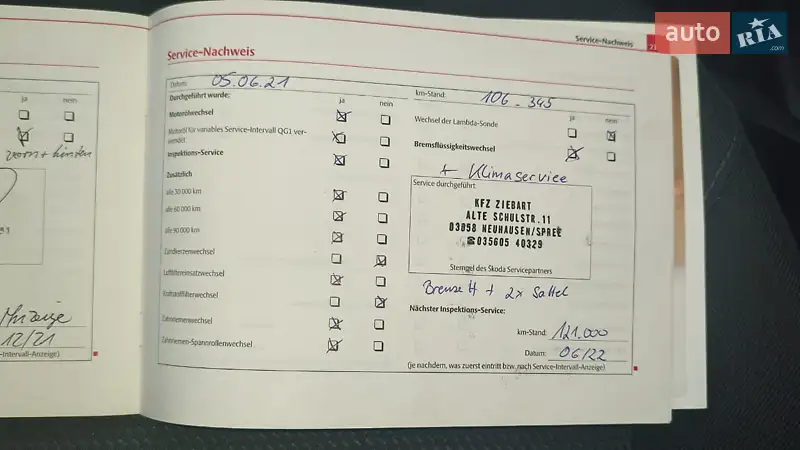 auto RIA .com
Service-Nachweis 21
Service-Nachweis
ja nein
vorn + hinten
Anzeige
12/21
-Intervall-Anzeige)
Datum: 05.06.21
Durchgeführt wurde: ja nein
Motorölwechsel
Motoröl für variables Service-Intervall QG1 ver-
wendet
Inspektions-Service
Zusätzlich
alle 30 000 km
alle 60 000 km
alle 90 000 km
Zündkerzenwechsel
Luftfiltereinsatzwechsel
Kraftstofffilterwechsel
Zahnriemenwechsel
Zahnriemen-Spannrollenwechsel
km-Stand: 106.345
ja nein
Wechsel der Lambda-Sonde
Bremsflüssigkeitswechsel
+ Klimaservice
Service durchgeführt
KFZ ZIEBART
ALTE SCHULSTR.11
03058 NEUHAUSEN/SPREE
☎035605 40329
Stempel des Škoda Servicepartners
Bremse H + 2x Sattel
Nächster Inspektions-Service:
km-Stand: 121.000
Datum: 06/22
(je nachdem, was zuerst eintritt bzw. nach Service-Intervall-Anzeige)